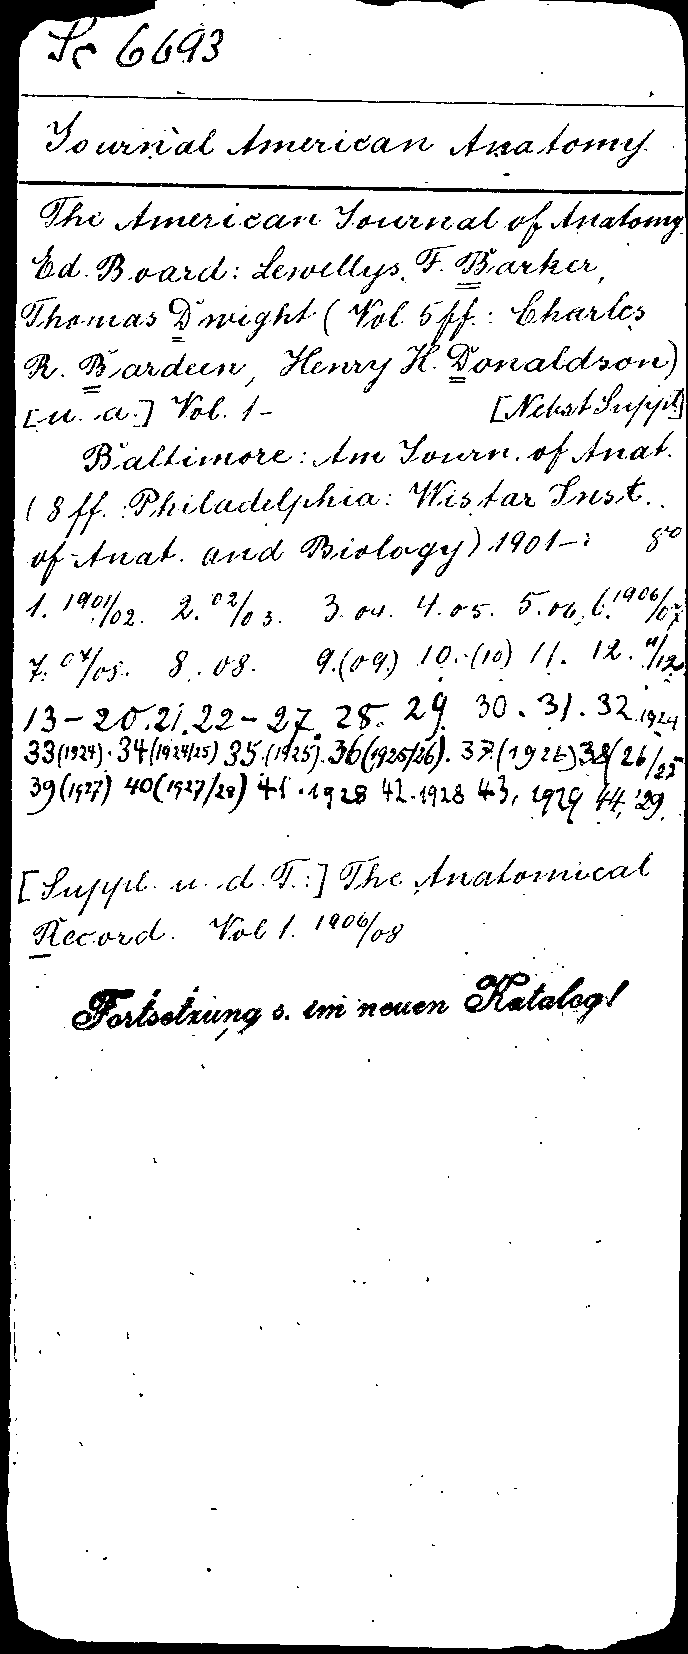 Sc 6693
Journal American Anatomy
The American Journal of Anatomy
Ed. Board: Lewellys, F. Barker,
Thomas Dwight (Vol. 5 ff.: Charles
R. Bardeen, Henry H. Donaldson)
[u. a.] Vol. 1- [Nebst Suppl.]
Baltimore: Am Journ. of Anat.
(8 ff. Philadelphia: Wistar Inst.
of Anat. and Biology) 1901-: 8º
1. 1901/02. 2. 02/03. 3. 04. 4. 05. 5. 06, 6. 1906/07
7. 07/08. 8. 08. 9. (09.) 10. (10) 11. 12. 11/12.
13 - 20. 21. 22 - 27. 28. 29. 30. 31. 32. 1924
33 (1924). 34 (1924/25) 35. (1925). 36 (1925/26). 37. (1926) 38 (26/27
39 (1927) 40 (1927/28) 41. 1928 42. 1928 43. 1929 44. '29.
[Suppl. u. d. T.:] The Anatomical
Record. Vol 1. 1906/08
Fortsetzung s. im neuen Katalog!